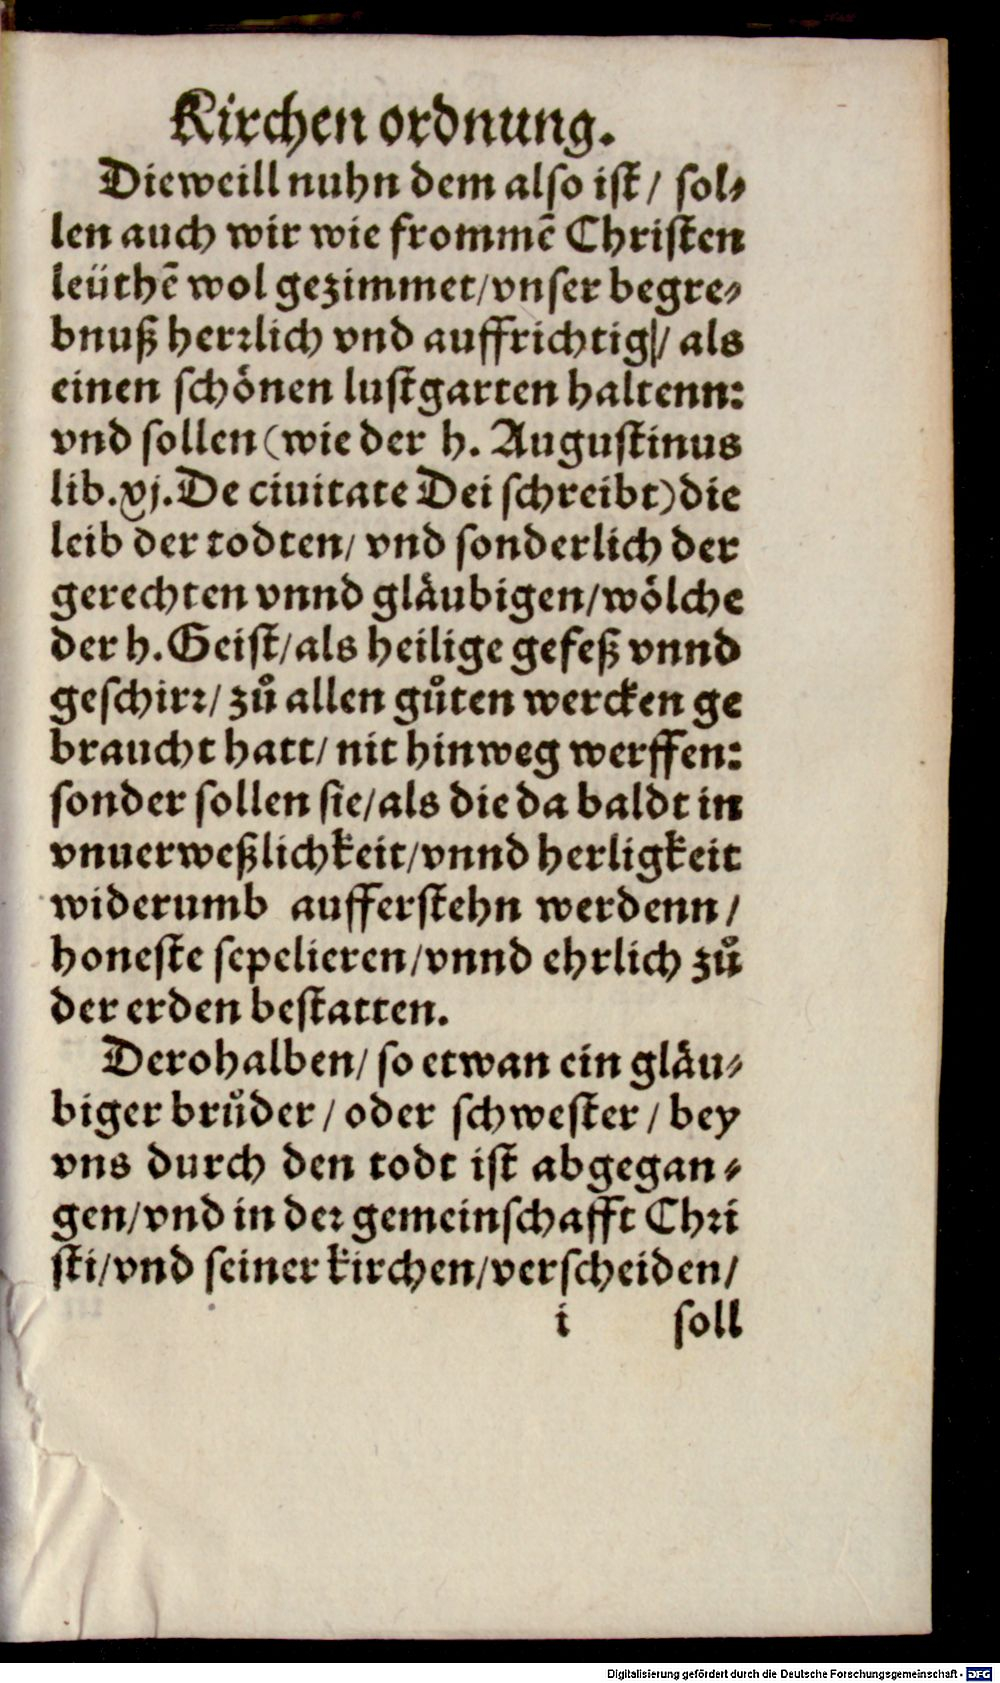 Kirchen ordnung.
Dieweill nuhn dem also ist/ sol⸗
len auch wir wie frommē Christen
leüthē wol gezimmet/vnser begre⸗
bnuß herꝛlich vnd auffrichtig/ als
einen schönen lustgarten haltenn:
vnd sollen (wie der h. Augustinus
lib. xj. De ciuitate Dei schreibt) die
leib der todten/ vnd sonderlich der
gerechten vnnd gläubigen/wölche
der h. Geist/als heilige gefeß vnnd
geschirꝛ/ zů allen gůten wercken ge
braucht hatt/ nit hinweg werffen:
sonder sollen sie/als die da baldt in
vnuerweßlichkeit/vnnd herligkeit
widerumb aufferstehn werdenn/
honeste sepelieren/vnnd ehrlich zů
der erden bestatten.
Derohalben/ so etwan ein gläu⸗
biger brůder/ oder schwester/ bey
vns durch den todt ist abgegan⸗
gen/vnd in deꝛ gemeinschafft Chꝛi
sti/vnd seiner kirchen/verscheiden/
i soll
Digitalisierung gefördert durch die Deutsche Forschungsgemeinschaft - DFG